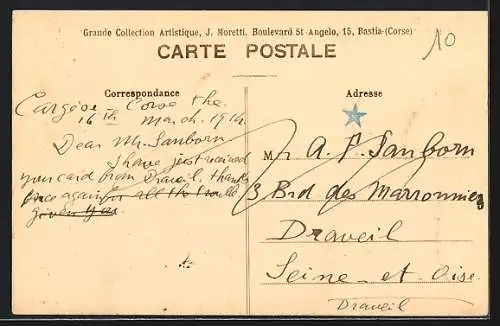 Grande Collection Artistique, J. Moretti, Boulevard St-Angelo, 15, Bastia-(Corse)
CARTE POSTALE
10
Correspondance
Adresse
Cargèse Corse the
16th March. 1914.
Dear Mr. Sanborn
I have just received
your card from Draveil. thanks
once again for all the trouble
given you.
Mr A. F. Sanborn
3 Brd des Marronniers
Draveil
Seine-et-Oise
Draveil